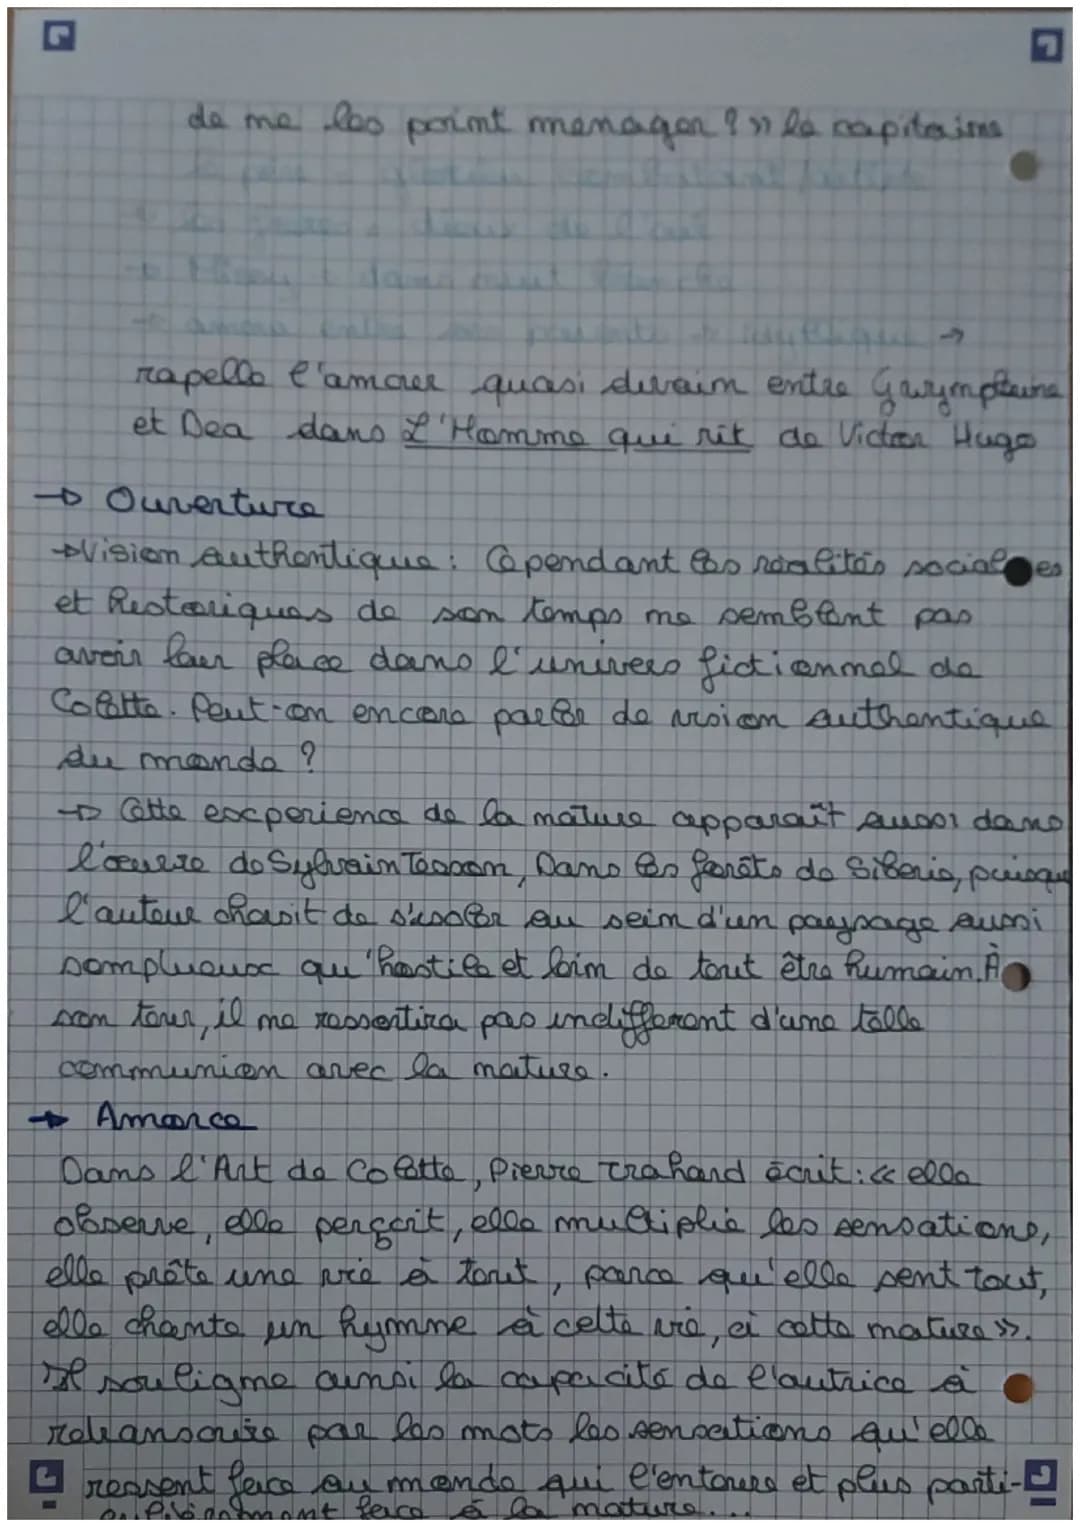 de me les point menager ? » le capitaine
de l'art
→
rapelle l'amour quasi divain entre Gwymplaine
et Dea dans L'Homme qui rit de Victor Hugo
→ Ouverture
→Vision authentique : Cependant les réalités sociales
et historiques de son temps ne semblent pas
avoir leur place dans l'univers fictionnel de
Colette. Peut-on encore parler de vision authentique
du monde ?
→ Cette expérience de la nature apparaît aussi dans
l'œuvre de Sylvain Tesson, Dans les forêts de Sibérie, puisque
l'auteur choisit de s'isoler au sein d'un paysage aussi
sompluoux qu'hostile et loin de tout être humain. À
son tour, il ne ressentira pas indifférent d'une telle
communion avec la nature.
→ Amorce
Dans l'Art de Colette, Pierre Trahard écrit : « elle
observe, elle perçoit, elle multiplie les sensations,
elle prête une vie à tout, parce qu'elle sent tout,
elle chante un hymne à cette vie, à cette nature ».
Il souligne ainsi la capacité de l'autrice à
retranscrire par les mots les sensations qu'elle
ressent face au monde qui l'entoure et plus parti-
culièrement face à la nature...